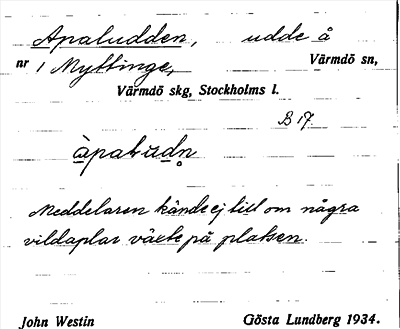 Apaludden, udde å
nr 1 Myttinge, Värmdö sn,
Värmdö skg, Stockholms l.
B 17
àpalùdn̥
Meddelaren kände ej till om några
vildaplar växte på platsen.
John Westin Gösta Lundberg 1934.